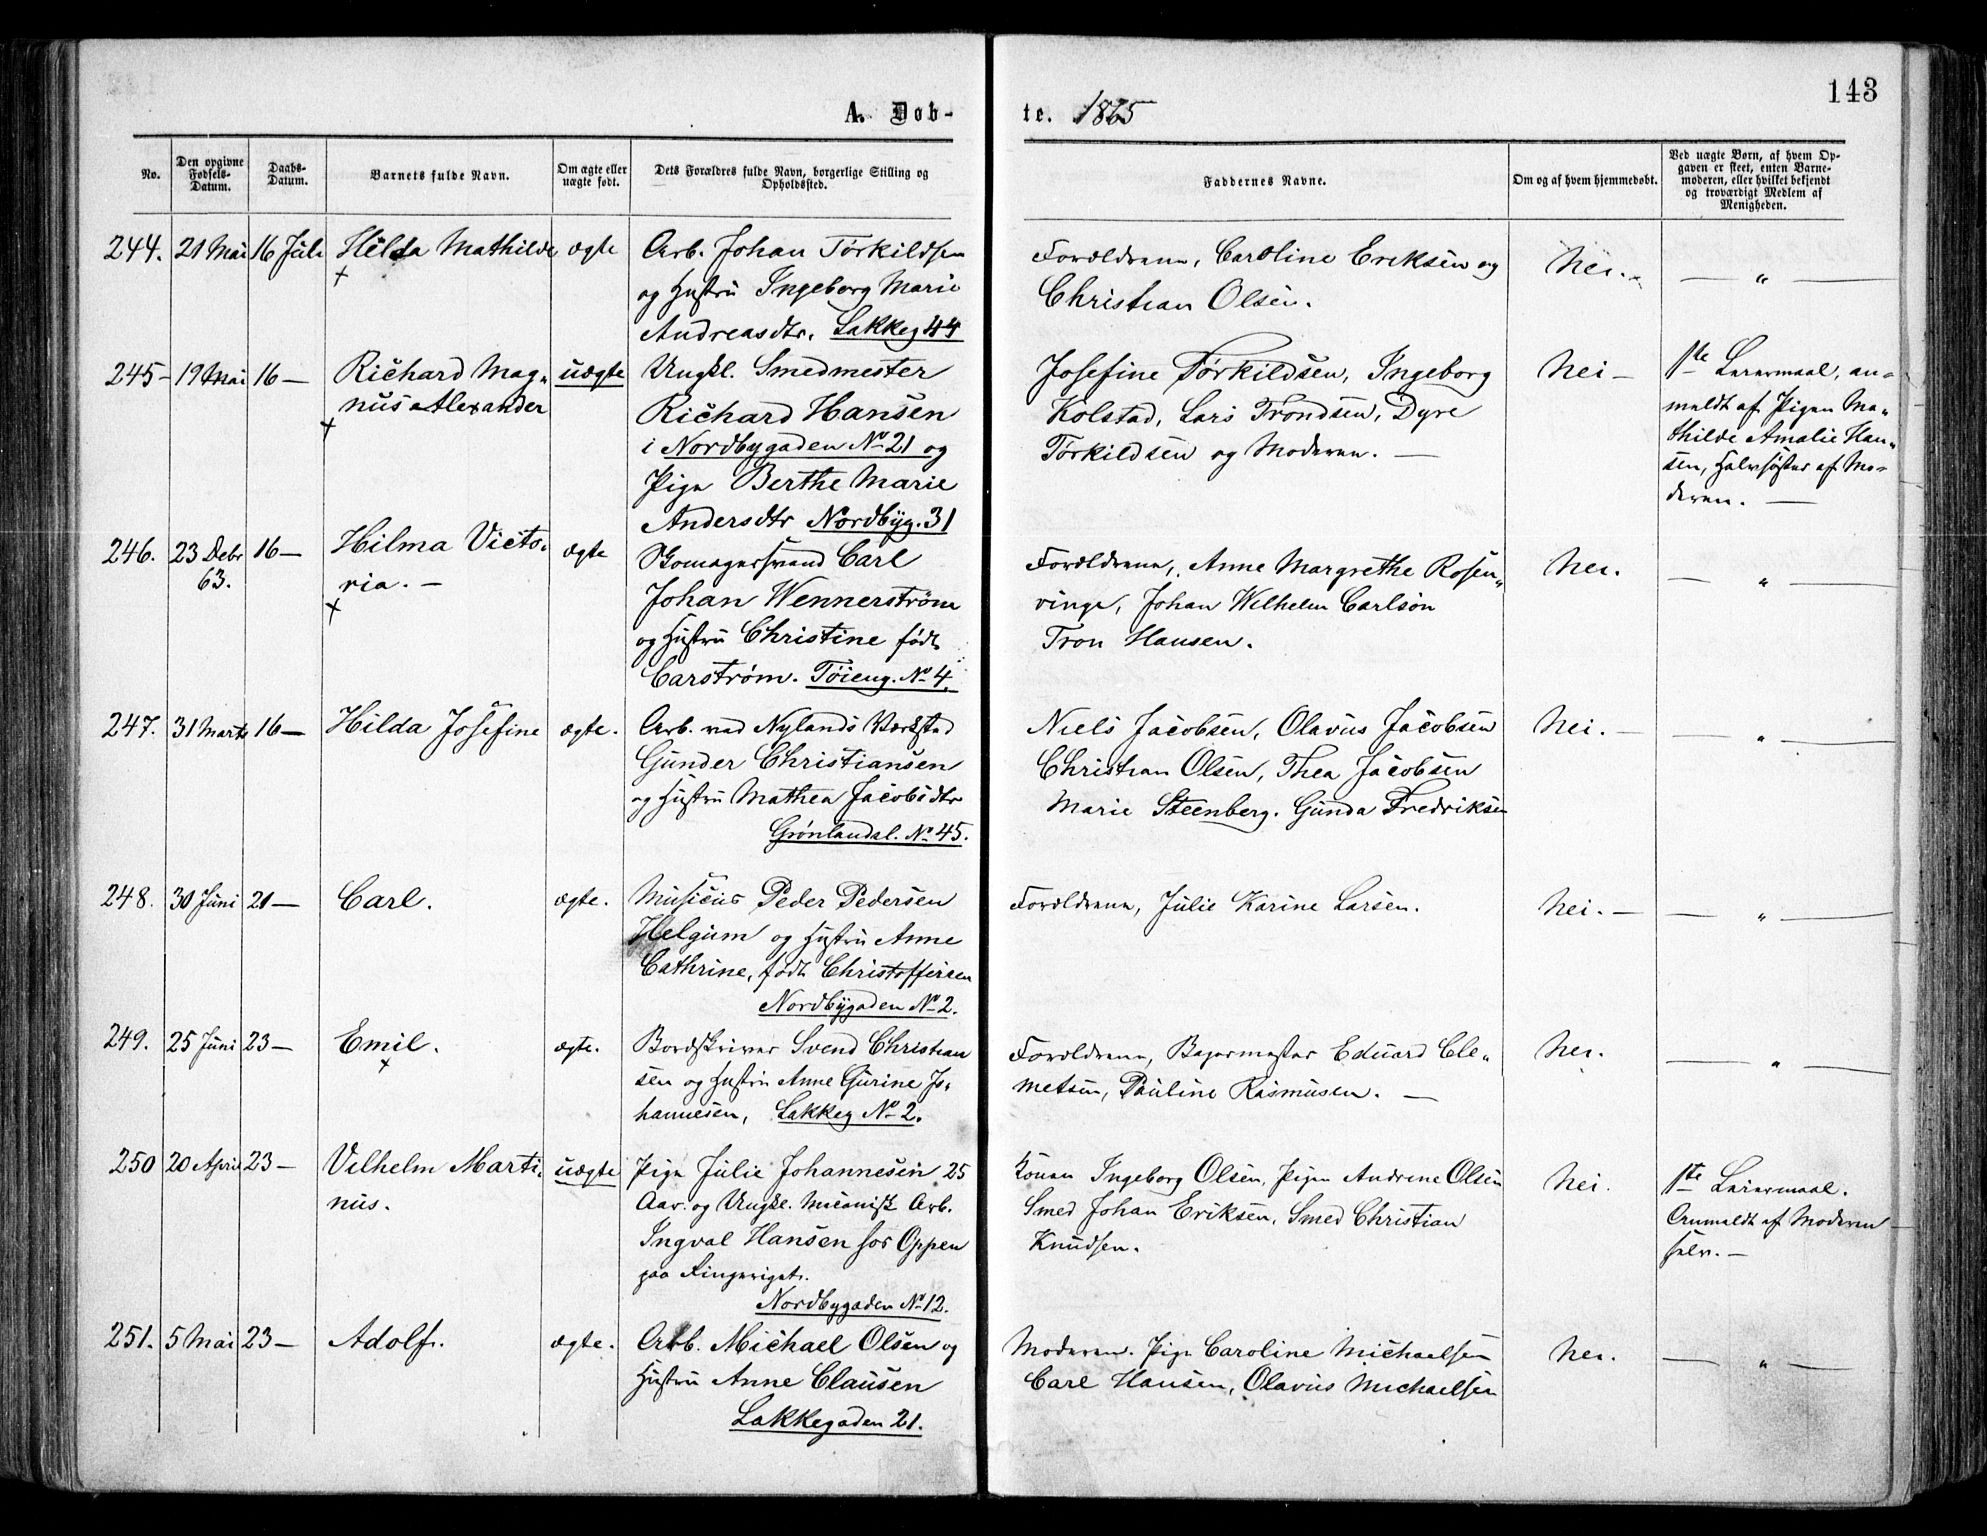 143
A. Døb-
te. 1865
No.
Den opgivne
Fødsels-
Datum.
Daabs-
Datum.
Barnets fulde Navn.
Om ægte eller
uægte født.
Dets Forældres fulde Navn, borgerlige Stilling og
Opholdssted.
Faddernes Navne.
Om og af hvem hjemmedøbt.
Ved uægte Børn, af hvem Op-
gaven er skeet, enten Barne-
moderen, eller hvilket bekjendt
og troværdigt Medlem af
Menigheden.
244. 21 Mai 16 Juli Hilda Mathilde ægte Arb. Johan Torkildsen
og Hustru Ingeborg Marie
Andreasdtr. Lakkeg 44
Forældrene, Caroline Eriksen og
Christian Olsen.
Nei. — " —
245 - 19 Mai 16 — Richard Mag-
nus Alexander
uægte Ungkl. Smedmester
Richard Hansen
i Nordbygaden No 21 og
Pige Berthe Marie
Andersdtr Nordbyg. 31
Josefine Torkildsen, Ingeborg
Kolstad, Lars Trondsen, Dyre
Torkildsen og Moderen. —
Nei —
1ste Leiermaal, an-
meldt af Pigen Ma-
thilde Amalie Han-
sen, Halvsøster af Mo-
deren. —
246. 23 Debr
63.
16 — Hilma Victo-
ria. —
ægte Skomagersvend Carl
Johan Wennerstrøm
og Hustru Christine født
Carstrøm. Tøieng. No 4.
Forældrene, Anne Margrethe Rosen-
vinge, Johan Wilhelm Carlson
Tron Hansen.
Nei. — " —
247. 31 Marts 16 — Hilda Josefine ægte. Arb. ved Nylands Værksted
Gunder Christiansen
og Hustru Mathea Jacobsdtr
Grønlandsl. No 45.
Niels Jacobsen, Olavus Jacobsen
Christian Olsen, Thea Jacobsen
Marie Steenberg. Gunda Fredriksen
Nei. — " —
248. 30 Juni 21 — Carl. ægte. Musicus Peder Pedersen
Helgum og Hustru Anne
Cathrine, født Christoffersen
Nordbygaden No 2.
Forældrene, Julie Karine Larsen.
Nei. — " —
249. 25 Juni 23 — Emil. ægte. Bordskriver Svend Christian
sen og Hustru Anne Gurine Jo-
hannesen, Lakkeg No 2.
Forældrene, Bagermester Eduard Cle-
metsen, Pauline Rasmusen. —
Nei. — " —
250 20 April 23 — Vilhelm Marti-
nus.
uægte Pige Julie Johannesen 25
Aar. og Ungkl. Mecanisk Arb.
Ingval Hansen hos Oppen
paa Ringeriget.
Nordbygaden No 12.
Konen Ingeborg Olsen, Pigen Andrine Olsen
Smed Johan Eriksen, Smed Christian
Knudsen.
Nei.
1ste Leiermaal.
Anmeldt af Moderen
selv. —
251. 5 Mai 23 — Adolf. ægte. Arb. Michael Olsen og
Hustru Anne Clausen
Lakkegaden 21.
Moderen. Pige Caroline Michaelsen
Carl Hansen, Olavus Michaelsen
Nei. — " —